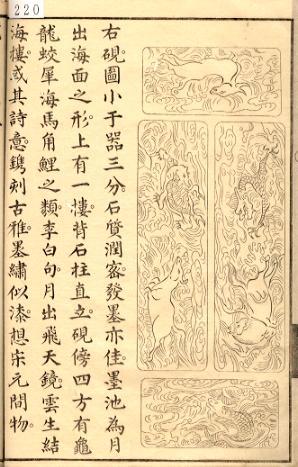 220
右硯圖小于器三分。石質潤密。發墨亦佳。墨池為月
出海面之形。上有一樓。背石柱直立。硯傍四方有龜
龍蛟犀海馬角鯉之類。李白句。月出飛天鏡。雲生結
海樓。或其詩意。鐫刻古雅。墨繡似漆。想宋元間物。